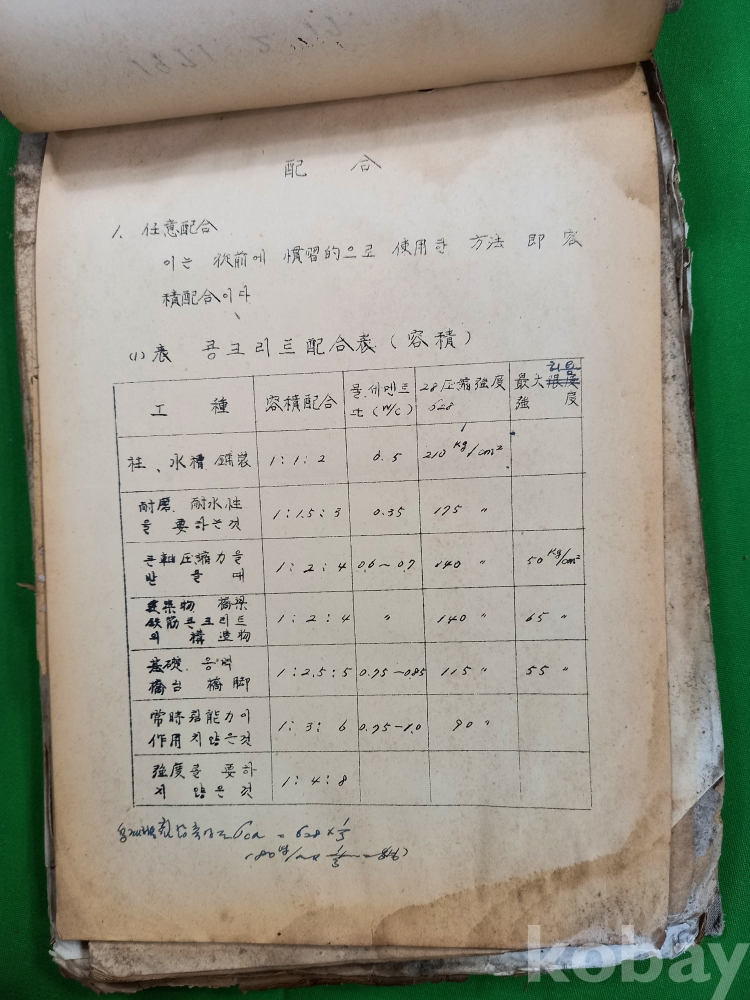 配 合
1. 任意配合
이는 從前에 慣習的으로 使用한 方法 即 容
積配合이다
(1) 表 콩크리트配合表 (容積)
工 種 容積配合 물.세멘트 28圧縮強度 最大허용
比 (W/C) σ28 強度
柱、水槽 舗装 1:1:2 0.5 210 kg/cm²
耐磨. 耐水性 1:1.5:3 0.35 175 〃
을 要하는것
큰軸圧縮力을 1:2:4 0.6~0.7 140 〃 50 kg/cm²
받 을 때
建築物 橋梁
鉄筋콘크리트 1:2:4 〃 140 〃 65 〃
의 構造物
基礎. 옹벽 1:2.5:5 0.75~0.85 115 〃 55 〃
橋台 橋脚
常時 能力이 1:3:6 0.75~1.0 90 〃
作用 지않은것
強度를 要하 1:4:8
지 않은것
σca = σ28 × 1/3
kobay